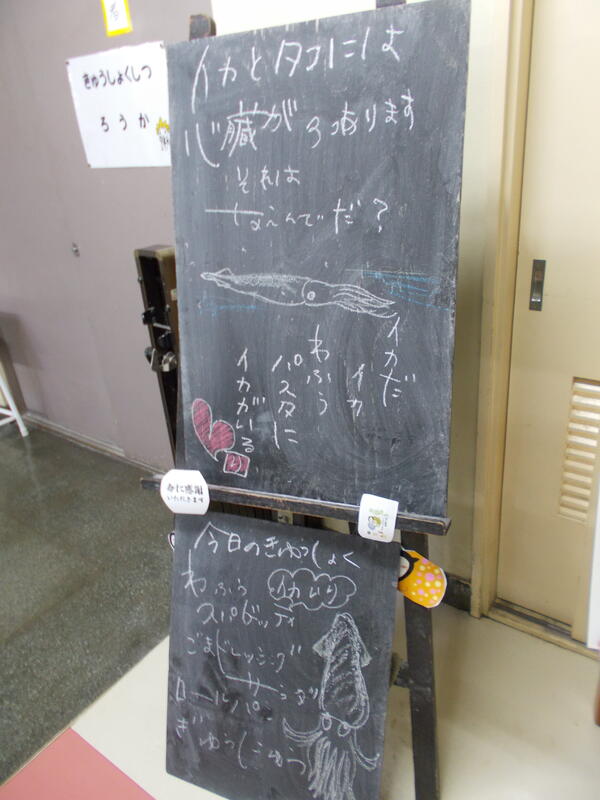 きゅうしょくしつ
ろうか
イカとタコには
心臓が3つあります
それは
なぁんでだ?
イカだ
イカ
わふう
パスタに
イカがいる。
命に感謝
いただきます
今日のきゅうしょく
わふう
イカいり
スパゲッティ
ごまドレッシング
サラダ
ロールパン
ぎゅうにゅう